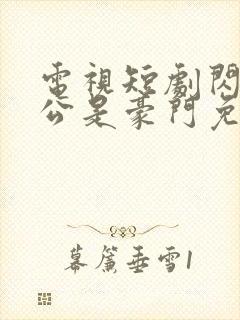 電視短劇閃
公是豪門免
幕簾垂雪1